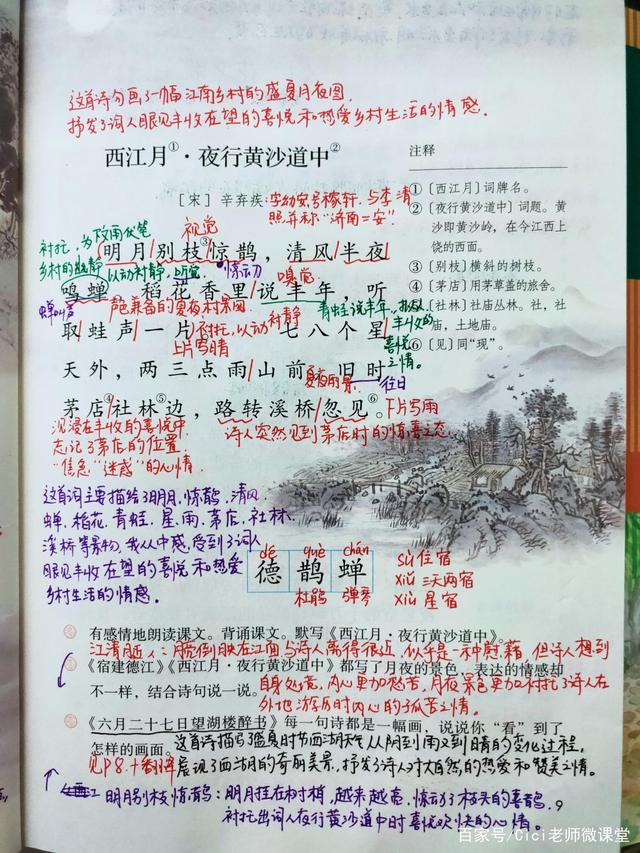 这首诗勾画了一幅江南乡村的盛夏月夜图.
抒发了词人眼见丰收在望的喜悦和热爱乡村生活的情感.
西江月①·夜行黄沙道中②
[宋] 辛弃疾:字幼安,号稼轩.与李清
照并称"济南二安"
视觉
衬托,为下文雨伏笔
乡村的寂静
明月/别枝③惊鹊,清风/半夜
以动衬静,明亮
惊动
嗅觉
鸣蝉 稻花香里/说丰年,听
蝉叫声
声色兼备的夏夜村景图
青蛙说丰年,
丰收的
喜悦
之情.
取蛙声一片 七八个星
衬托,以动衬静
上片写晴
天外,两三点雨/山前 旧时
夏夜雨景
往日
茅店④/社林⑤边,路转溪桥/忽见⑥
下片写雨
沉浸在丰收的喜悦中
忘记了茅店的位置
"焦急""迷惑"的心情
诗人突然见到茅店时的惊喜之态
注释
①〔西江月〕词牌名。
②〔夜行黄沙道中〕词题。黄
沙即黄沙岭,在今江西上
饶的西面。
③〔别枝〕横斜的树枝。
④〔茅店〕用茅草盖的旅舍。
〔社林〕社庙丛林。社,社
庙,土地庙。
⑥〔见〕同"现"。
这首词主要描绘了明月,惊鹊,清风
蝉,稻花,青蛙,星,雨,茅店,社林
溪桥等景物,我从中感受到了词人
眼见丰收在望的喜悦和热爱
乡村生活的情感。
dé què chán
德 鹊 蝉
杜鹃 弹琴
sù 住宿
xiǔ 三天两宿
xiù 星宿
有感情地朗读课文。背诵课文。默写《西江月·夜行黄沙道中》。
江清月近人:月亮倒映在江面与诗人离得很近,似乎是一种慰藉 但诗人想到
《宿建德江》《西江月·夜行黄沙道中》都写了月夜的景色,表达的情感却
不一样,结合诗句说一说。
自身处境,内心更加愁苦,月夜景色更加衬托了诗人在
外地游历时内心的孤苦之情.
《六月二十七日望湖楼醉书》每一句诗都是一幅画,说说你"看"到了
怎样的画面。
这首诗描写了盛夏时节西湖天气从阴到雨又到晴的变化过程,
见P8.
展现了西湖的奇丽美景,抒发了诗人对大自然的热爱和赞美之情.
明月别枝惊鹊:明月挂在树梢,越来越亮,惊动了枝头的喜鹊,
衬托出词人夜行黄沙道中时喜欢欢快的心情。
9
百家号/Cici老师微课堂